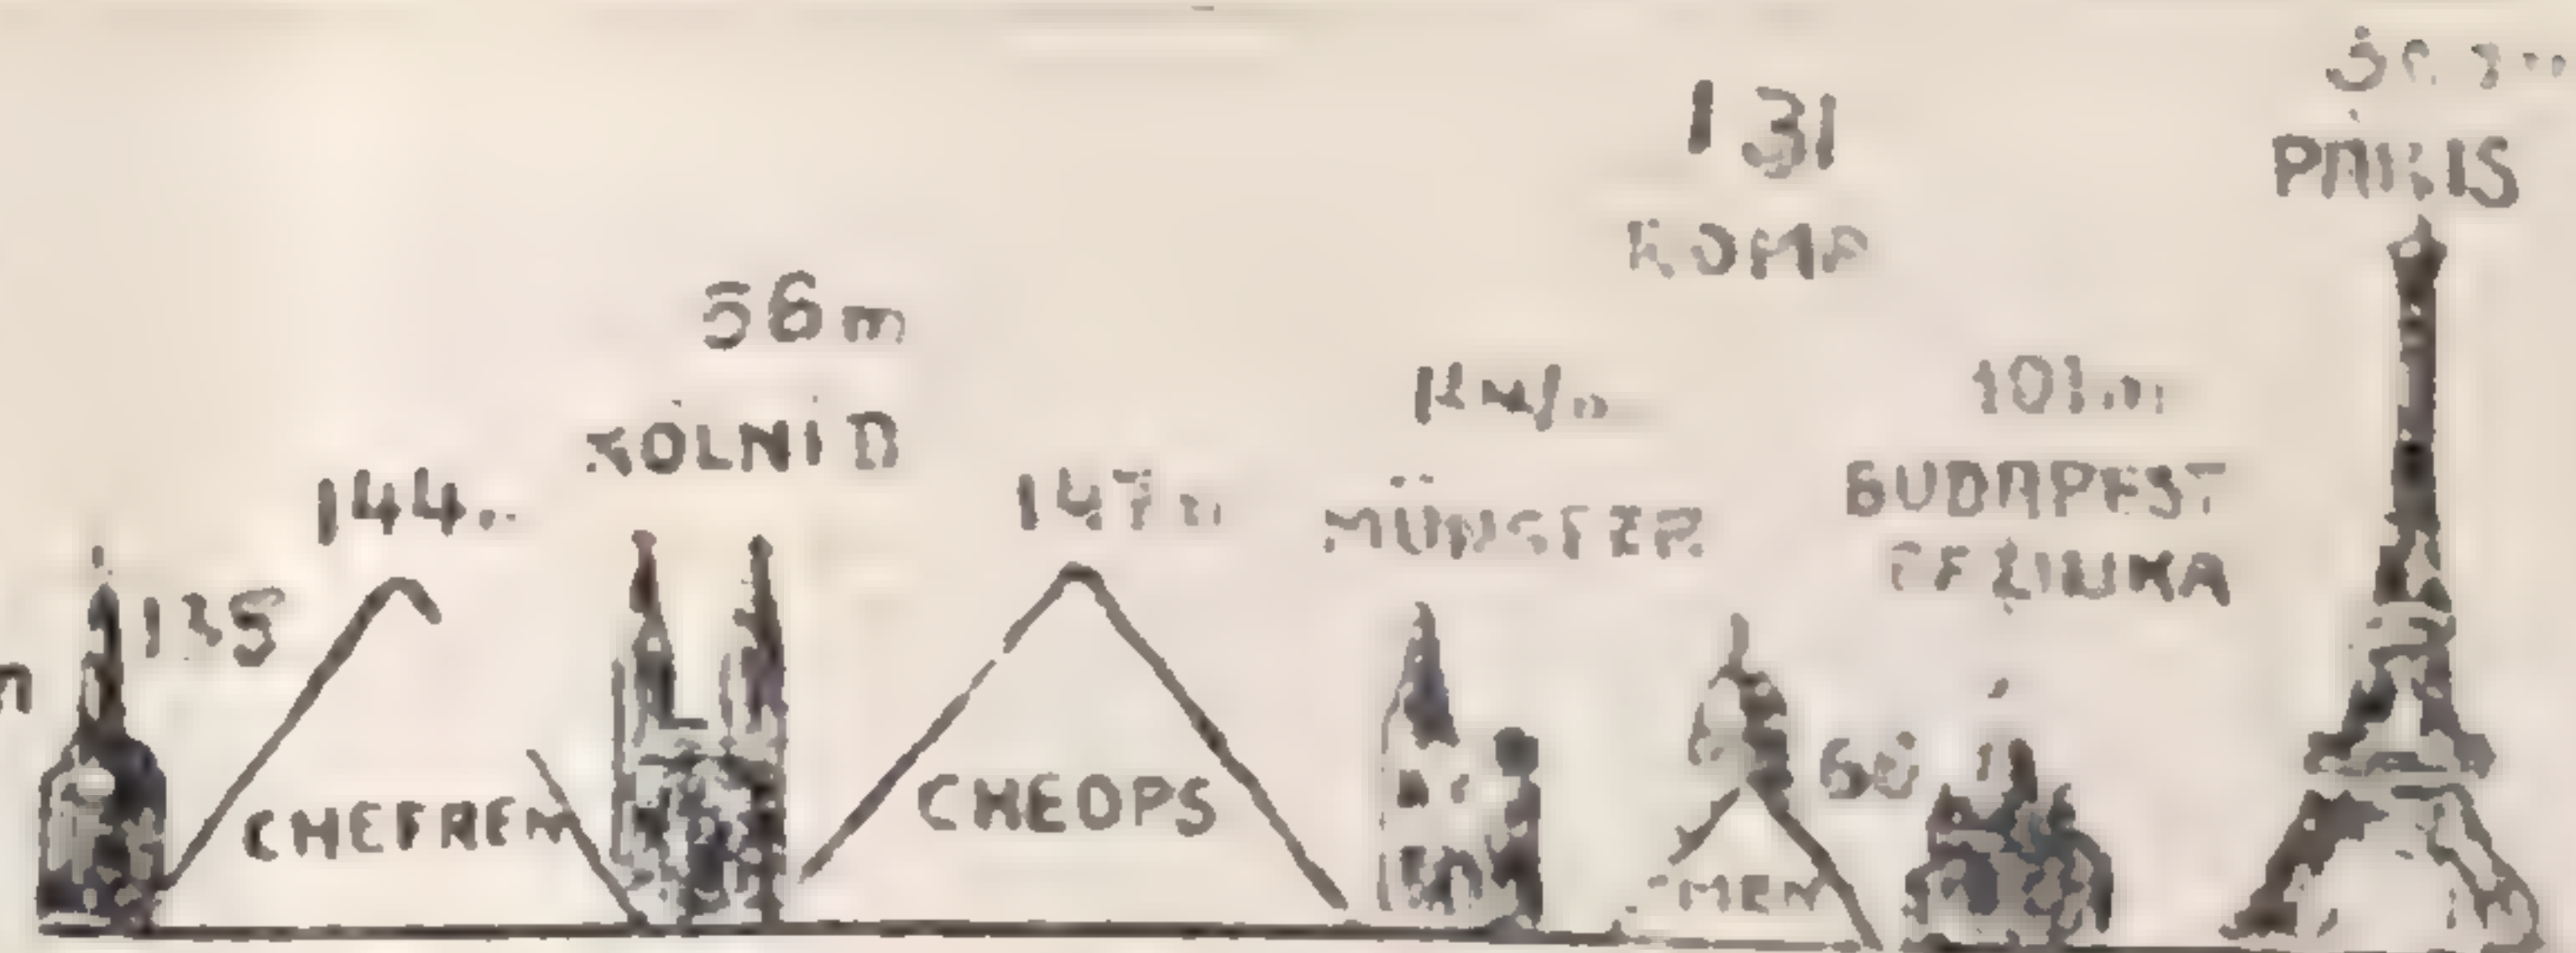 135
144
CHEFREN
56m
KÖLNI D
147
CHEOPS
MÜNSTER
131
ROMA
MEN
68
101m
BUDAPEST
PARIS